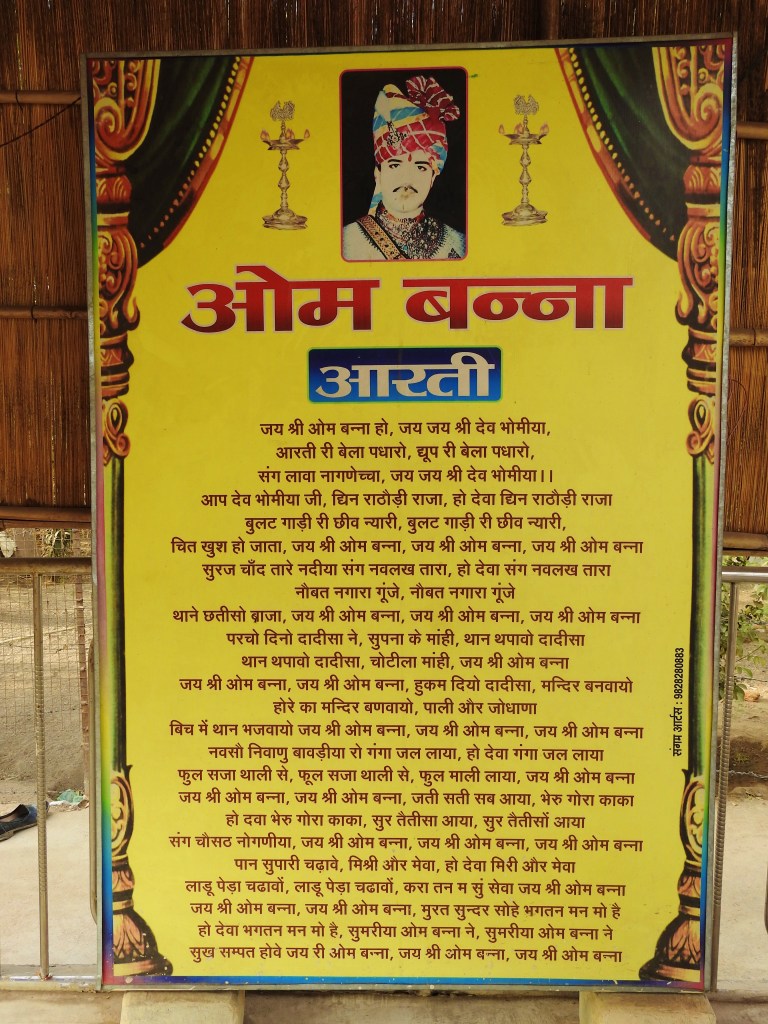 ओम बन्ना
आरती
जय श्री ओम बन्ना हो, जय जय श्री देव भोमीया,
आरती री बेला पधारो, द्यूप री बेला पधारो,
संग लावा नागणेच्चा, जय जय श्री देव भोमीया।।
आप देव भोमीया जी, द्यिन राठौड़ी राजा, हो देवा द्यिन राठौड़ी राजा
बुलट गाड़ी री छीव न्यारी, बुलट गाड़ी री छीव न्यारी,
चित खुश हो जाता, जय श्री ओम बन्ना, जय श्री ओम बन्ना, जय श्री ओम बन्ना
सुरज चाँद तारे नदीया संग नवलख तारा, हो देवा संग नवलख तारा
नौबत नगारा गूंजे, नौबत नगारा गूंजे
थाने छतीसो ब्राजा, जय श्री ओम बन्ना, जय श्री ओम बन्ना, जय श्री ओम बन्ना
परचो दिनो दादीसा ने, सुपना के मांही, थान थपावो दादीसा
थान थपावो दादीसा, चोटीला मांही, जय श्री ओम बन्ना
जय श्री ओम बन्ना, जय श्री ओम बन्ना, हुकम दियो दादीसा, मन्दिर बनवायो
होरे का मन्दिर बणवायो, पाली और जोधाणा
बिच में थान भजवायो जय श्री ओम बन्ना, जय श्री ओम बन्ना, जय श्री ओम बन्ना
नवसौ निवाणु बावड़ीया रो गंगा जल लाया, हो देवा गंगा जल लाया
फुल सजा थाली से, फूल सजा थाली से, फुल माली लाया, जय श्री ओम बन्ना
जय श्री ओम बन्ना, जय श्री ओम बन्ना, जती सती सब आया, भेरु गोरा काका
हो दवा भेरु गोरा काका, सुर तैतीसा आया, सुर तैतीसों आया
संग चौसठ नोगणीया, जय श्री ओम बन्ना, जय श्री ओम बन्ना, जय श्री ओम बन्ना
पान सुपारी चढ़ावे, मिश्री और मेवा, हो देवा मिरी और मेवा
लाडू पेड़ा चढावों, लाडू पेड़ा चढावों, करा तन म सुं सेवा जय श्री ओम बन्ना
जय श्री ओम बन्ना, जय श्री ओम बन्ना, मुरत सुन्दर सोहे भगतन मन मो है
हो देवा भगतन मन मो है, सुमरीया ओम बन्ना ने, सुमरीया ओम बन्ना ने
सुख सम्पत होवे जय री ओम बन्ना, जय श्री ओम बन्ना, जय श्री ओम बन्ना
संगम आर्टस : 9828280883